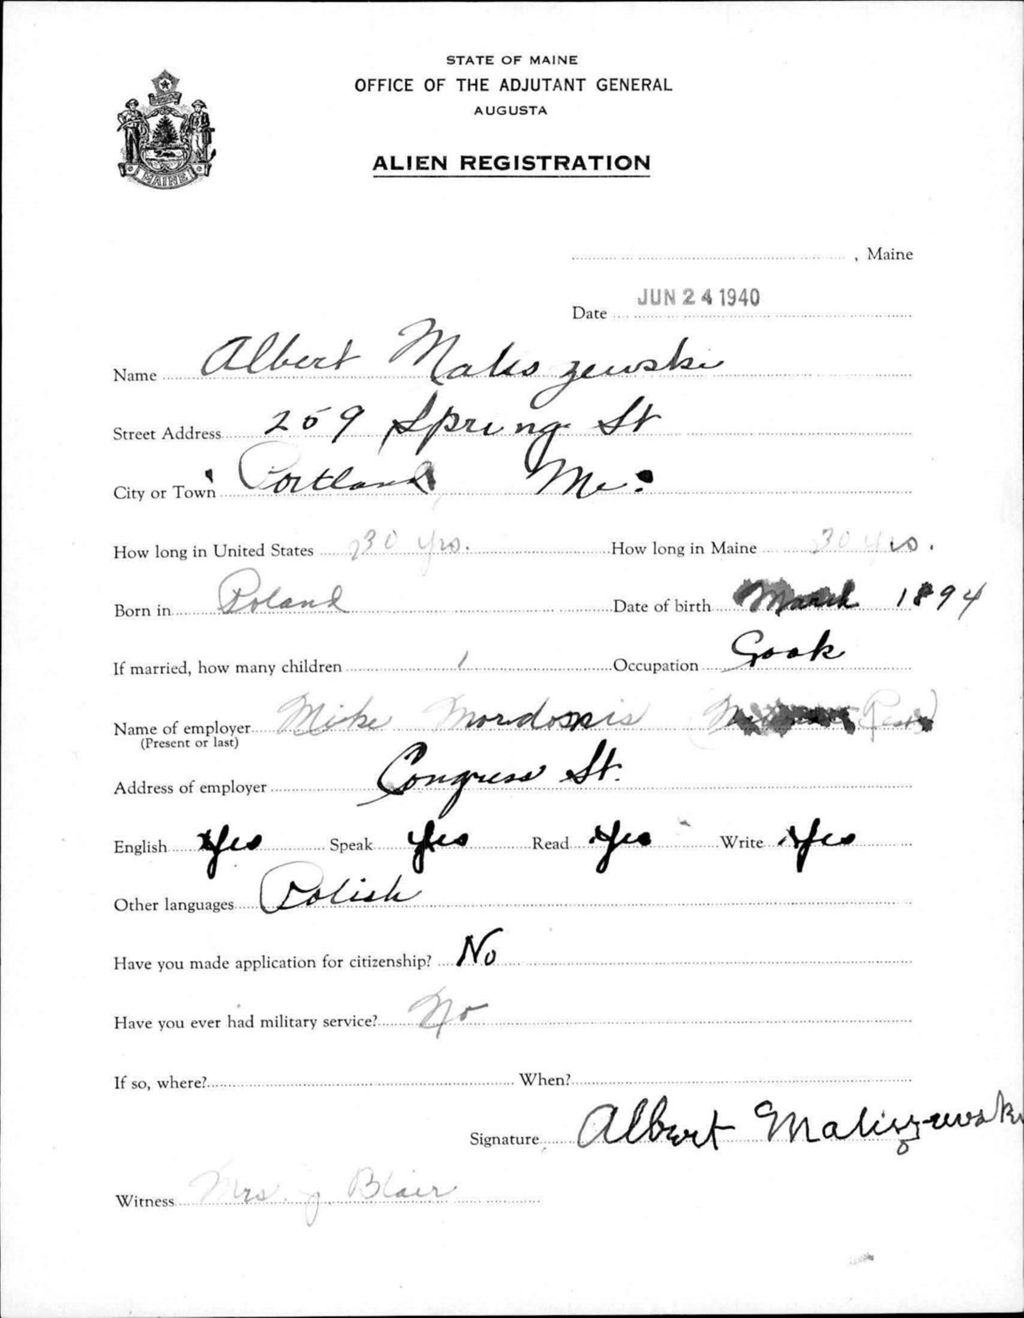 STATE OF MAINE
OFFICE OF THE ADJUTANT GENERAL
AUGUSTA
ALIEN REGISTRATION
MAINE
, Maine
Date JUN 24 1940
Name Albert Maliszewski
Street Address 259 Spring St
City or Town Portland Me.
How long in United States 30 yrs. How long in Maine 30 yrs.
Born in Poland Date of birth March 1894
If married, how many children 1 Occupation Cook
Name of employer Mike
(Present or last)
Address of employer Congress St.
English Yes Speak Yes Read Yes Write Yes
Other languages Polish
Have you made application for citizenship? No
Have you ever had military service? No
If so, where? When?
Signature Albert Maliszewski
Witness Mrs. J Blair